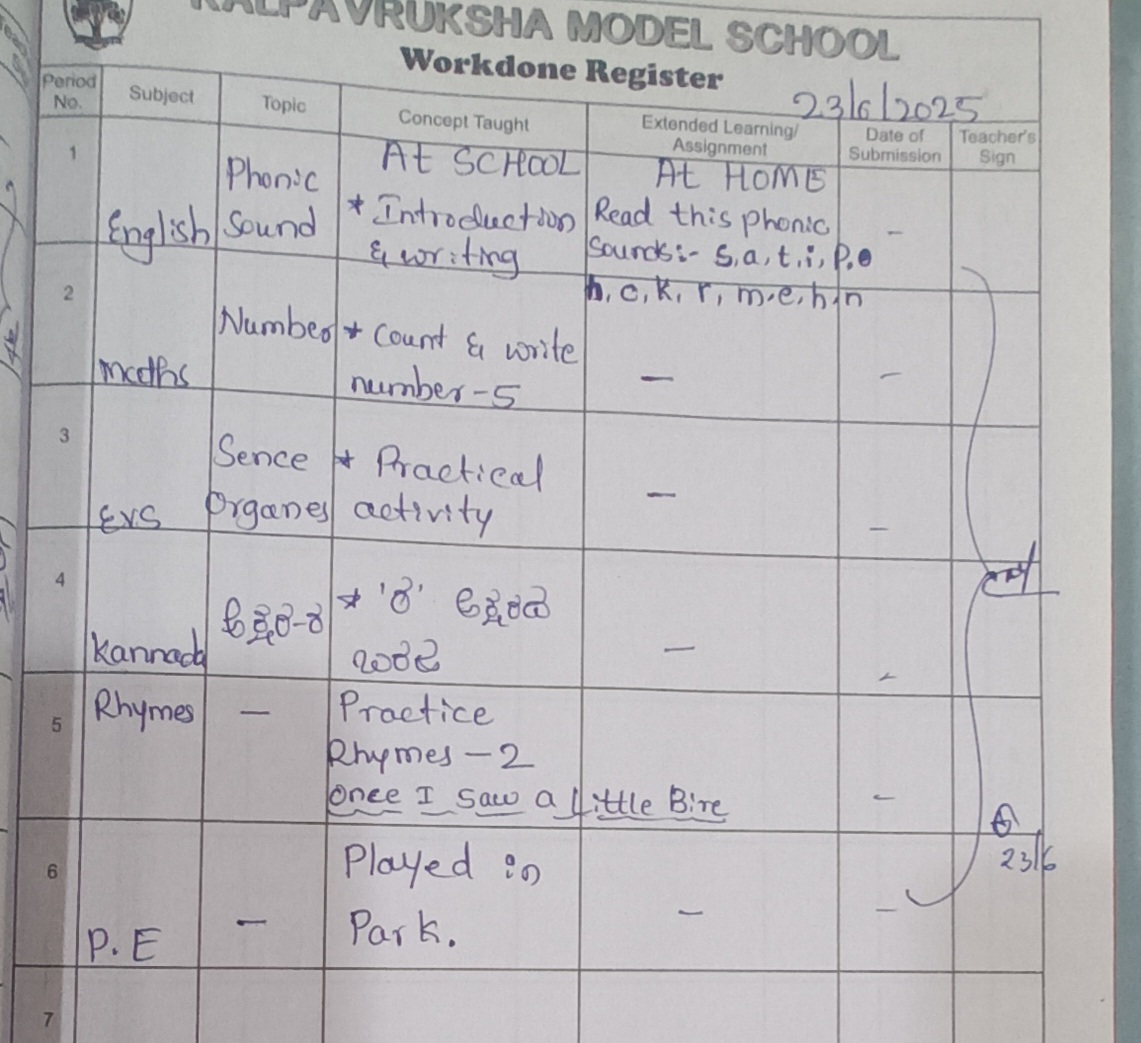 KALPAVRUKSHA MODEL SCHOOL
Workdone Register
23/6/2025
Period No.
Subject
Topic
Concept Taught
Extended Learning/
Assignment
Date of
Submission
Teacher's
Sign
At SCHOOL
At HOME
1
English
Phonic
Sound
* Introduction
& writing
Read this phonic
Sounds:- s, a, t, i, p.
h, c, k, r, m. e, h, n
-
2
Maths
Number
* Count & write
number - 5
-
-
3
EVS
Sence
Organes
* Practical
activity
-
-
4
Kannada
ಅಕ್ಷರ-ರ
* 'ರ' ಅಕ್ಷರದ
-
-
5
Rhymes
-
Practice
Rhymes - 2
Once I Saw a Little Bire
-
6
P.E
-
Played in
Park.
-
-
23/6
7